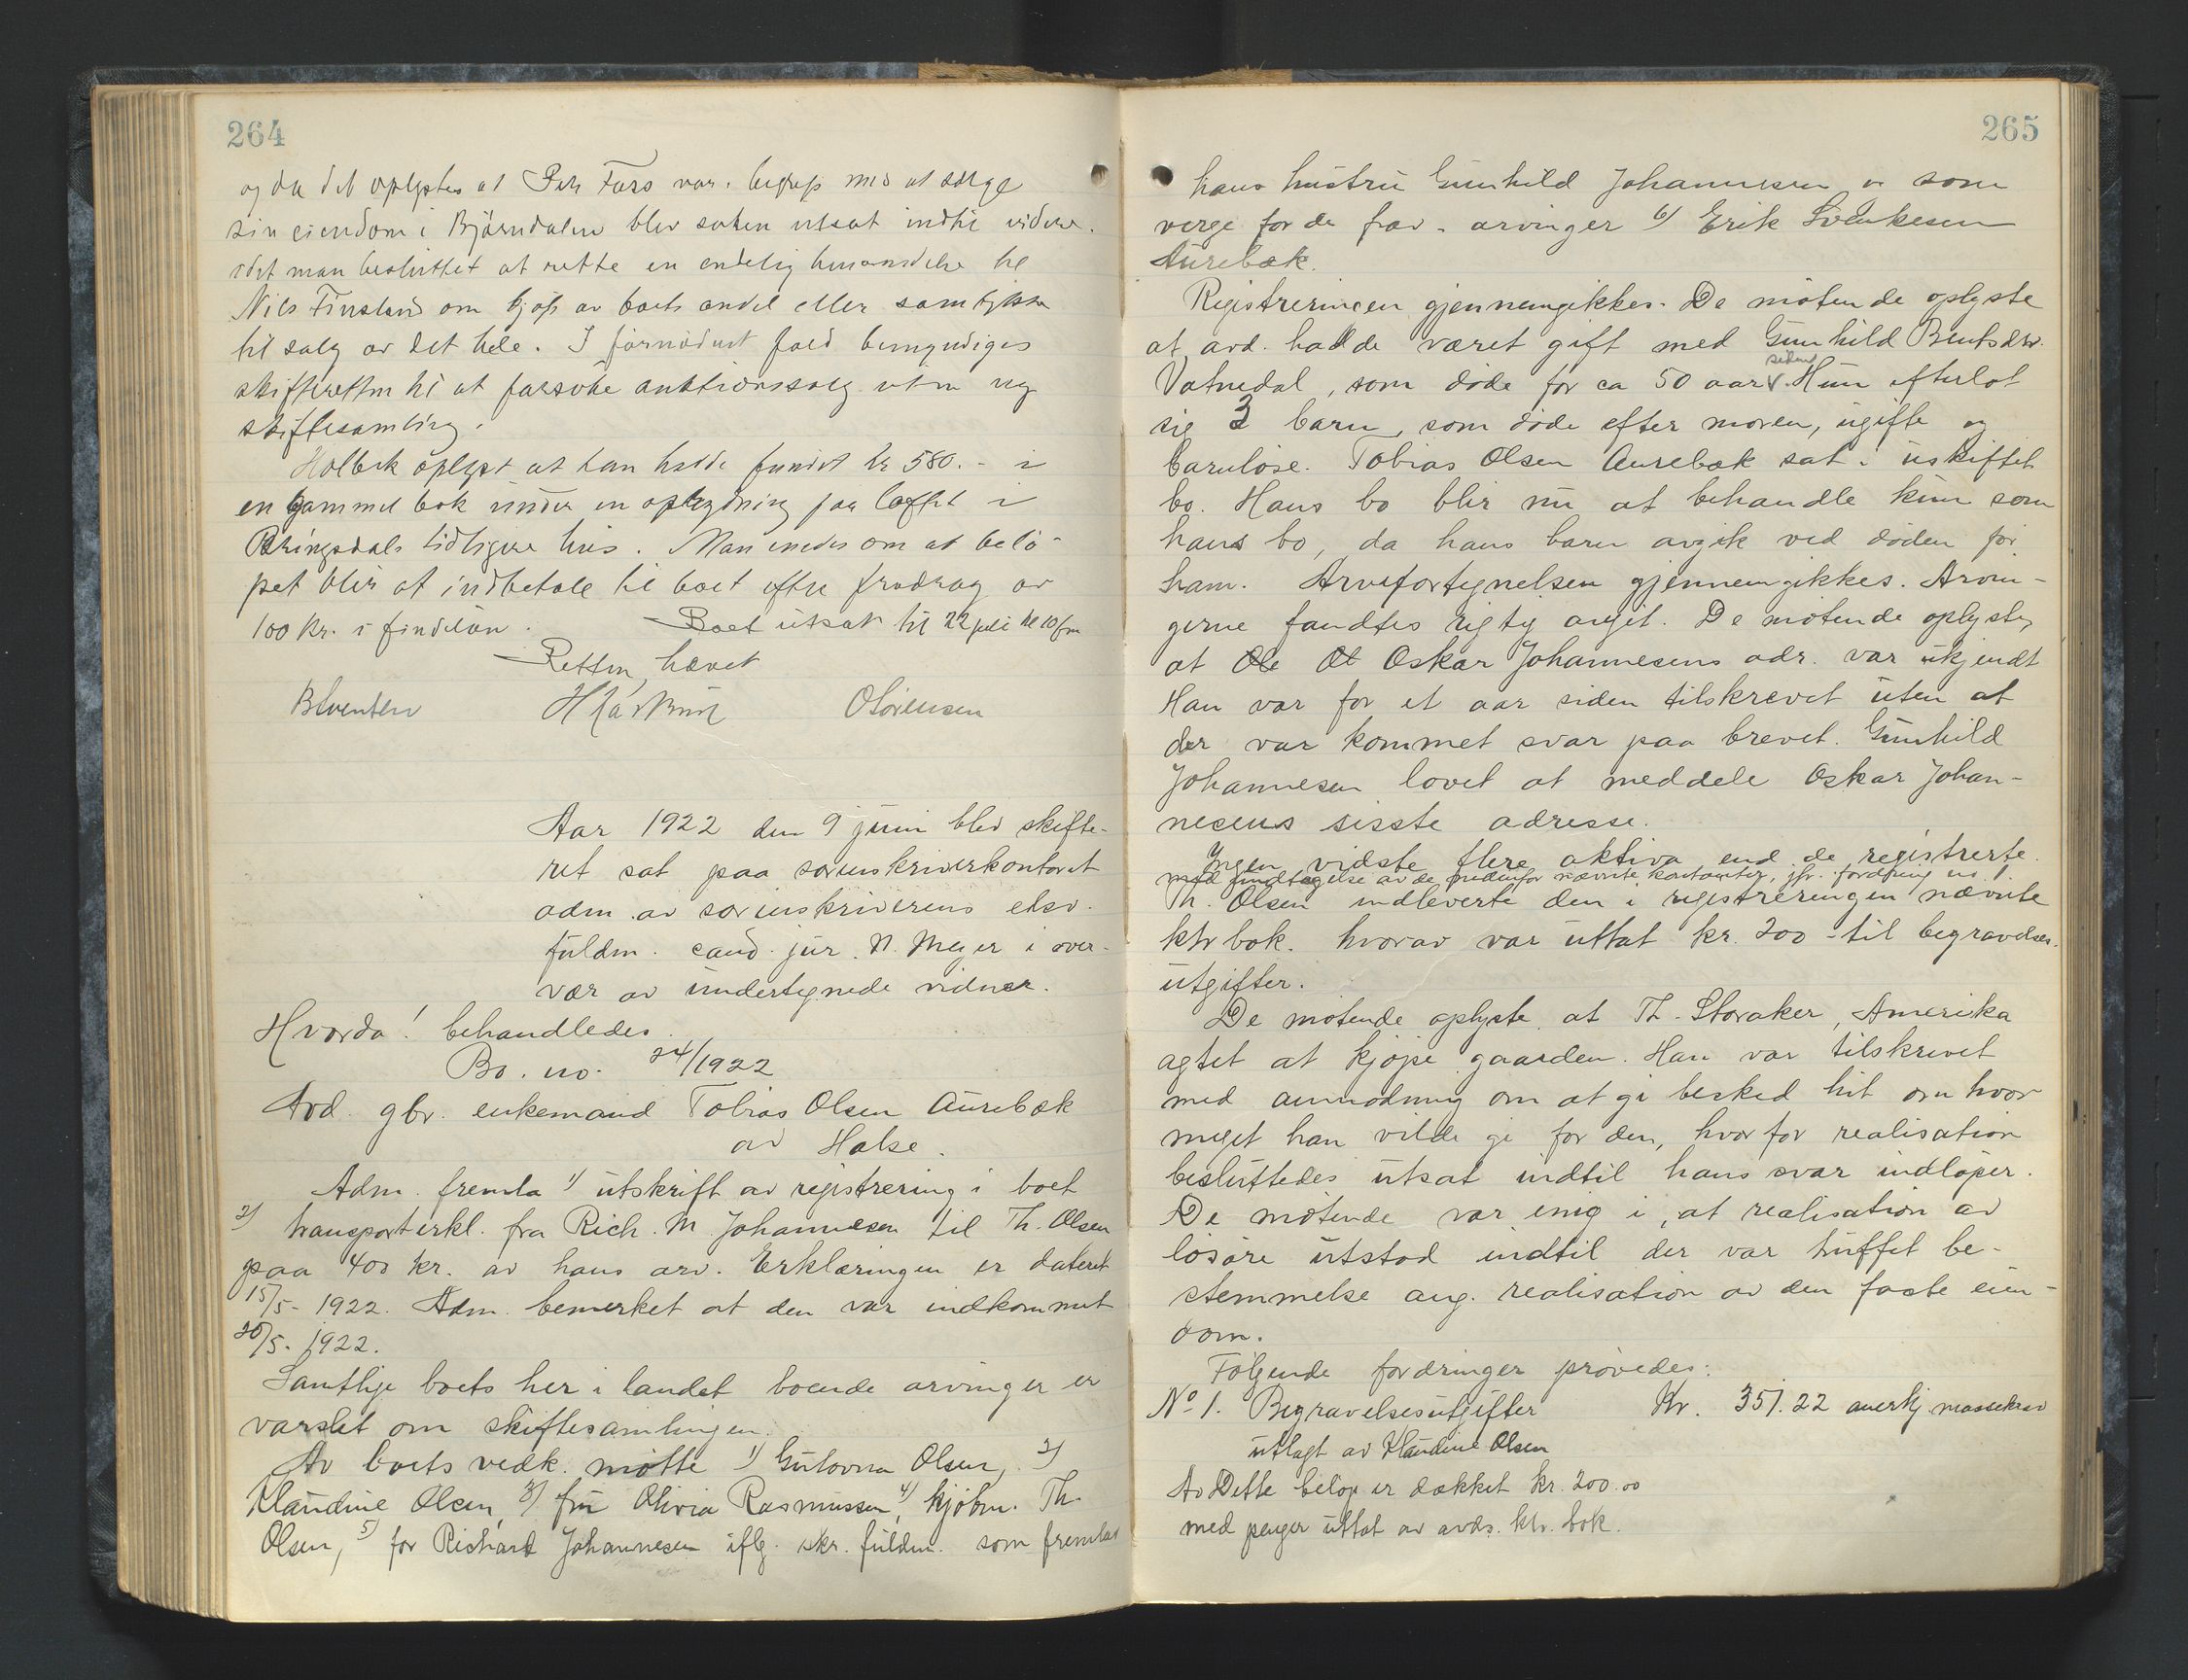 264
og da det oplystes at Peh Fars var. begreps med at sælge
sin eiendom i Bjørndalen blev saken utsat indtil videre.
idet man besluttet at rette en endelig henvendelse til
Nils Finsland om kjøp av boets andel eller samtykke
til salg av det hele. I fornødent fald bemyndiges
skifteretten til at forsøke auktionssalg uten ny
skiftesamling.
Holbek oplyst at han hadde fundet kr 580.- i
en gammel bok under en oplægning paa loftet i
Røringsdals tidligere hus. Man enedes om at belø-
pet blir at indbetale til boet efter fradrag av
100 kr. i findeløn. Boet utsat til 22 juli kl 10 fm
Retten hævet
BSventsen O Sørensen
Aar 1922 den 9 juni blev skifte-
ret sat paa sorenskriverkontoret
adm. av sorenskriverens eksv.
fuldm. cand. jur. N. Meyer i over-
vær av undertegnede vidner.
Hvorda! behandledes.
Bo. no. 24/1922
Avd. gbr. enkemand Tobias Olsen Aurebæk
av Halse.
Adm. fremla 1) utskrift av registrering i boet
2) transporterkl. fra Rich. M. Johannesen til Th. Olsen
paa 400 kr. av hans arv. Erklæringen er dateret
15/5- 1922. Adm. bemerket at den var indkommet
20/5. 1922.
Samtlige boets her i landet boende arvinger er
varslet om skiftesamlingen.
Av boets vedk. møtte 1) Gustovna Olsen, 2)
Klaudine Olsen, 3) fru Olivia Rasmussen, 4) kjøbm. Th.
Olsen, 5) for Richard Johannesen iflg. skr. fuldm. som fremlas
265
hans hustru Gunhild Johannesen og som
verge for de frav. arvinger 6) Erik Svenkesen
Aurebæk.
Registreringen gjennemgikkes. De møtende oplyste
at avd. hadde været gift med Gunhild Bentsdtr.
Vatnedal, som døde for ca 50 aar siden. Hun efterlot
sig 3 barn, som døde efter moren, ugifte og
barnløse. Tobias Olsen Aurebæk sat i uskiftet
bo. Hans bo blir nu at behandle kun som
hans bo, da hans barn avgik ved døden før
ham. Arvefortegnelsen gjennemgikkes. Arvin-
gerne fandtes rigtig angit. De møtende oplyste,
at Ole Ol Oskar Johannesens adr. var ukjendt
Han var for et aar siden tilskrevet uten at
der var kommet svar paa brevet. Gunhild
Johannesen lovet at meddele Oskar Johan-
nesens sisste adresse.
Ingen vidste flere aktiva end de registrerte.
med undtagelse av de nedenfor nævnte kontanter, jfr. fordring no 1.
Th. Olsen indleverte den i registreringen nævnte
ktr bok. hvorav var uttat kr. 200 - til begravelses-
utgifter.
De møtende oplyste at Th. Storaker, Amerika
agtet at kjøpe gaarden. Han var tilskrevet
med anmodning om at gi besked hit om hvor
meget han vilde gi for den, hvorfor realisation
besluttedes utsat indtil hans svar indløper.
De møtende var enig i, at realisation av
løsøre utstod indtil der var truffet be-
stemmelse ang. realisation av den faste eien-
dom.
Følgende fordringer prøvedes:
No 1. Begravelsesutgifter Kr. 351.22 anerkj massekrav
utlagt av Klaudine Olsen
Av Dette beløp er dækket kr. 200.00
med penger uttat av avds. ktr. bok.